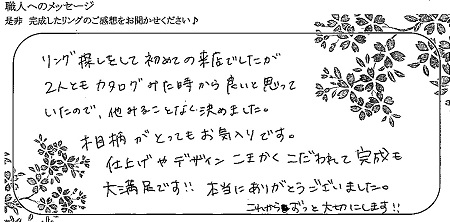 職人へのメッセージ
是非 完成したリングのご感想をお聞かせください♪
リング探しをして初めての来店でしたが
2人ともカタログみた時から良いと思って
いたので、他みることなく決めました。
木目柄がとってもお気入りです。
仕上げやデザインこまかくこだわれて完成も
大満足です!! 本当にありがとうございました。
これからずっと大切にします!!